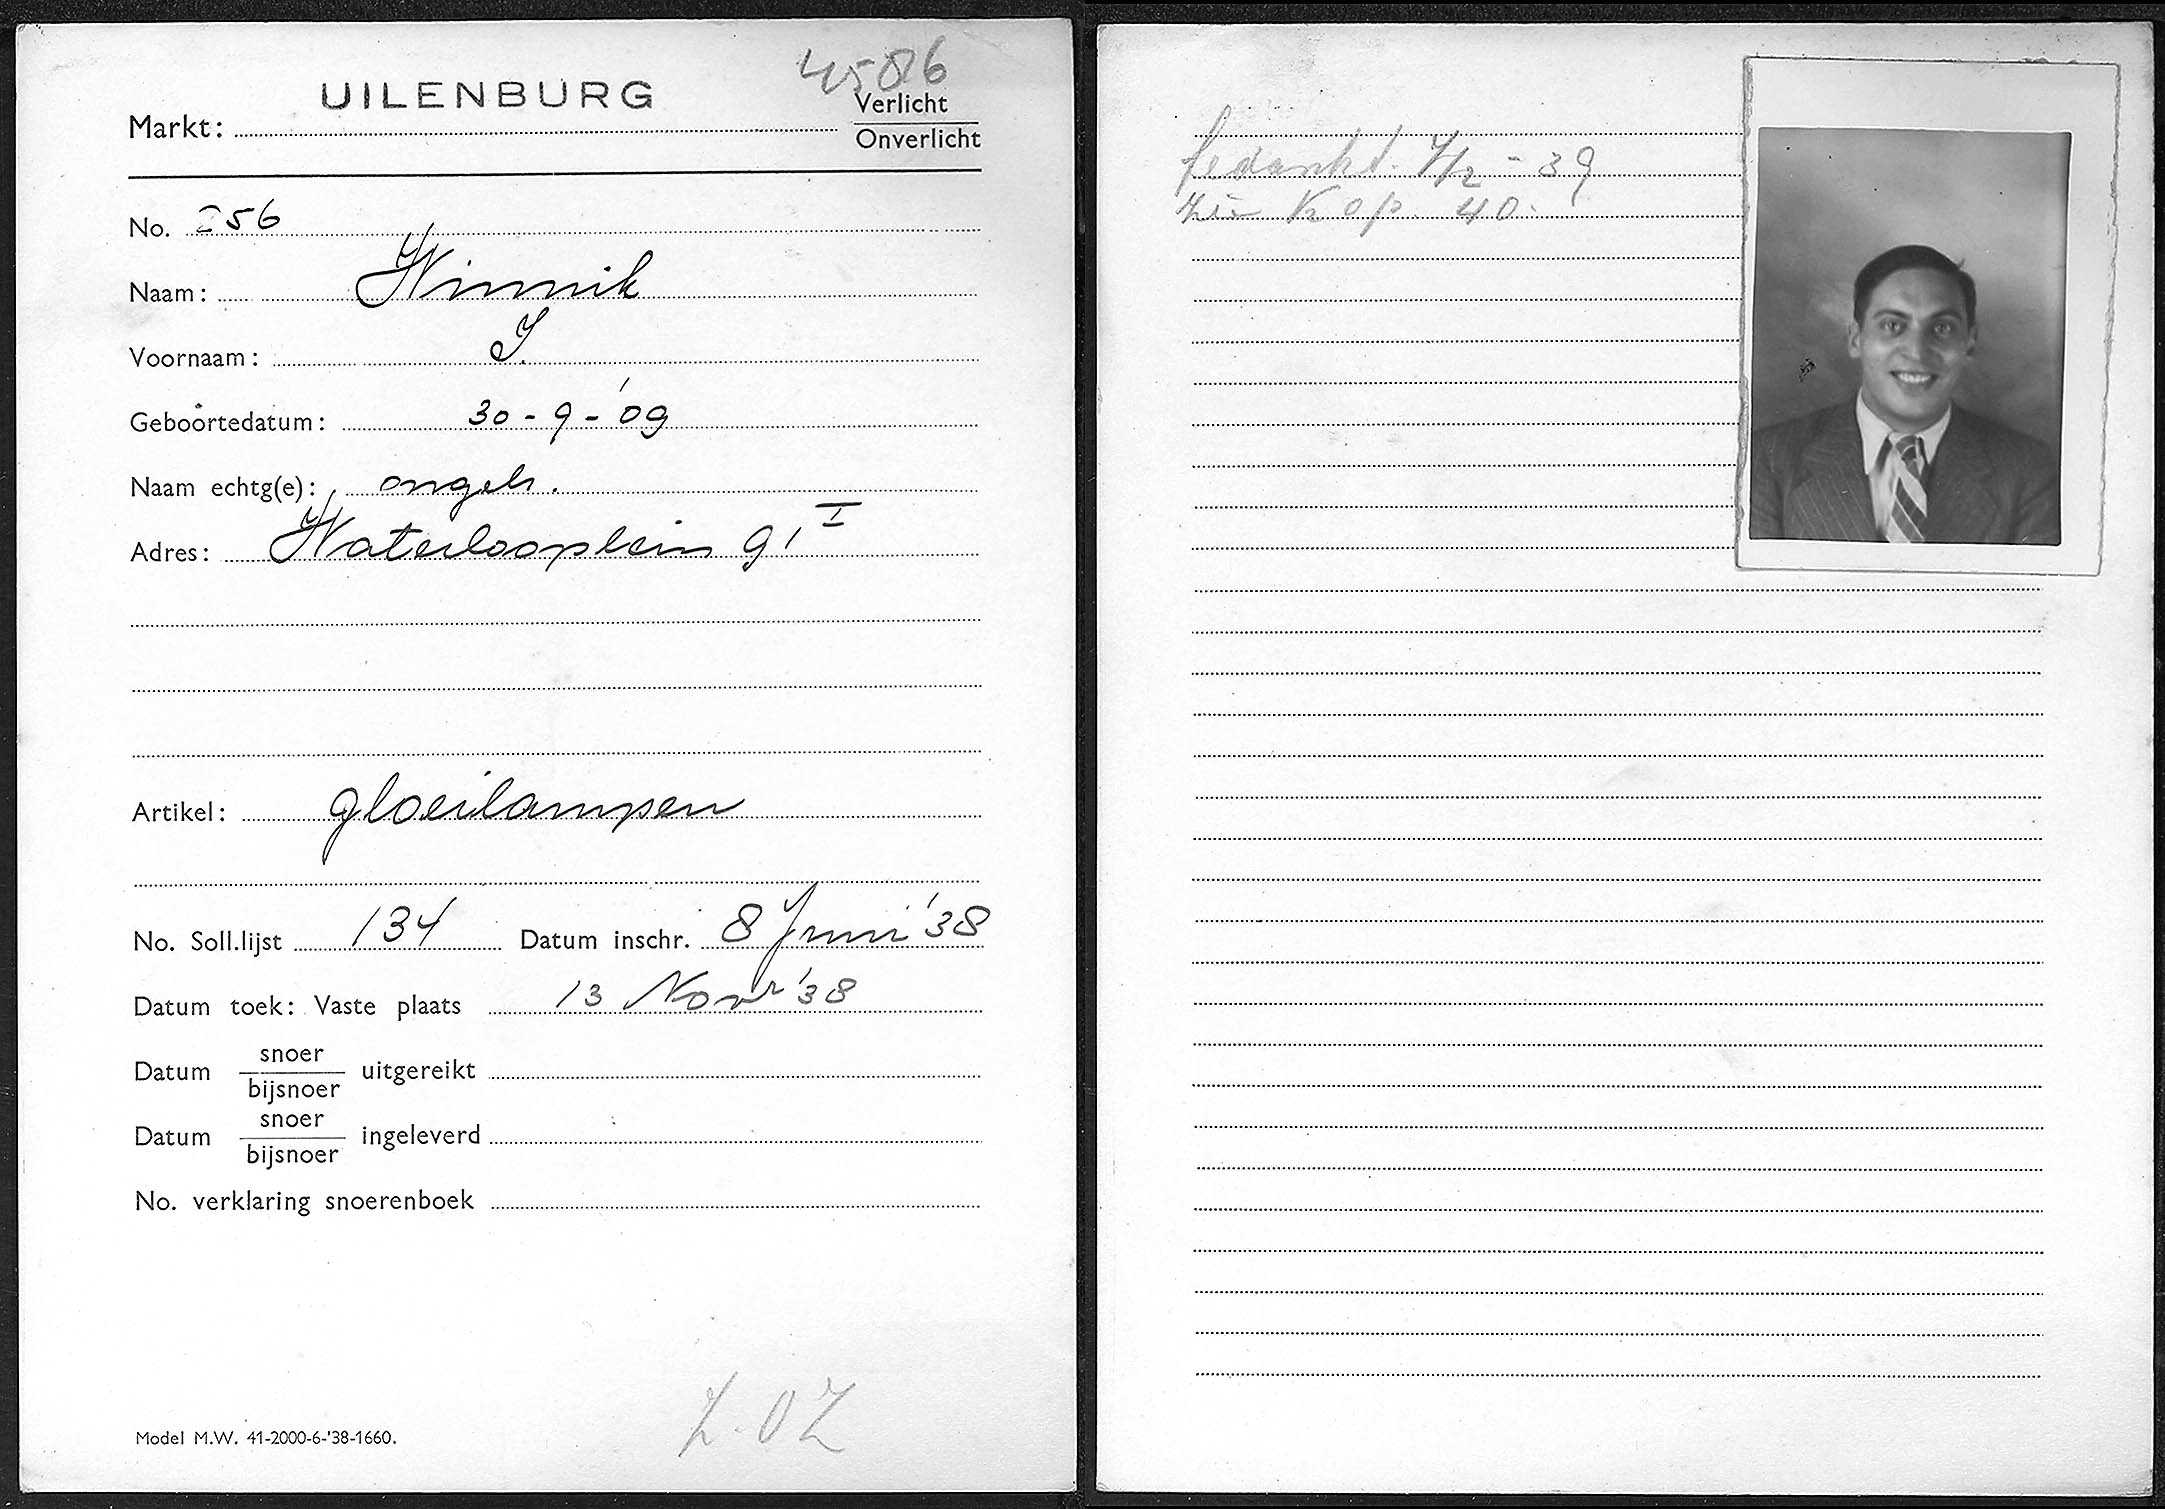 4586
UILENBURG
Markt:
Verlicht
Onverlicht
No. I 56
Naam: Winnik
Voornaam: I.
Geboortedatum: 30-9-'09
Naam echtg(e): ongeh.
Adres: Waterlooplein 91 I
Artikel: gloeilampen
No. Soll.lijst 134 Datum inschr. 8 Juni '38
Datum toek: Vaste plaats 13 Novr '38
Datum snoer/bijsnoer uitgereikt
Datum snoer/bijsnoer ingeleverd
No. verklaring snoerenboek
Z.OZ
Model M.W. 41-2000-6-'38-1660.
bedankt. 7/2-39
zie K op. 40.